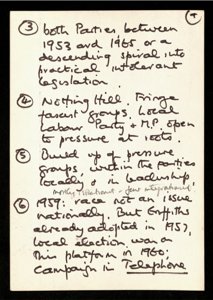 4
③ both Parties between
1953 and 1965 or a
descending spiral into
practical intolerant
legislation.
④ Notting Hill. Fringe
fascist groups. Local
Labour Party & M.P. open
to pressure at roots.
⑤ Build up of pressure
groups, within the parties
locally & in leadership,
mostly + few integrationist
⑥ 1959: race not an issue
nationally. But Griffiths
already adopted in 1957,
local election, won on
this platform in 1960:
campaign in Telephone